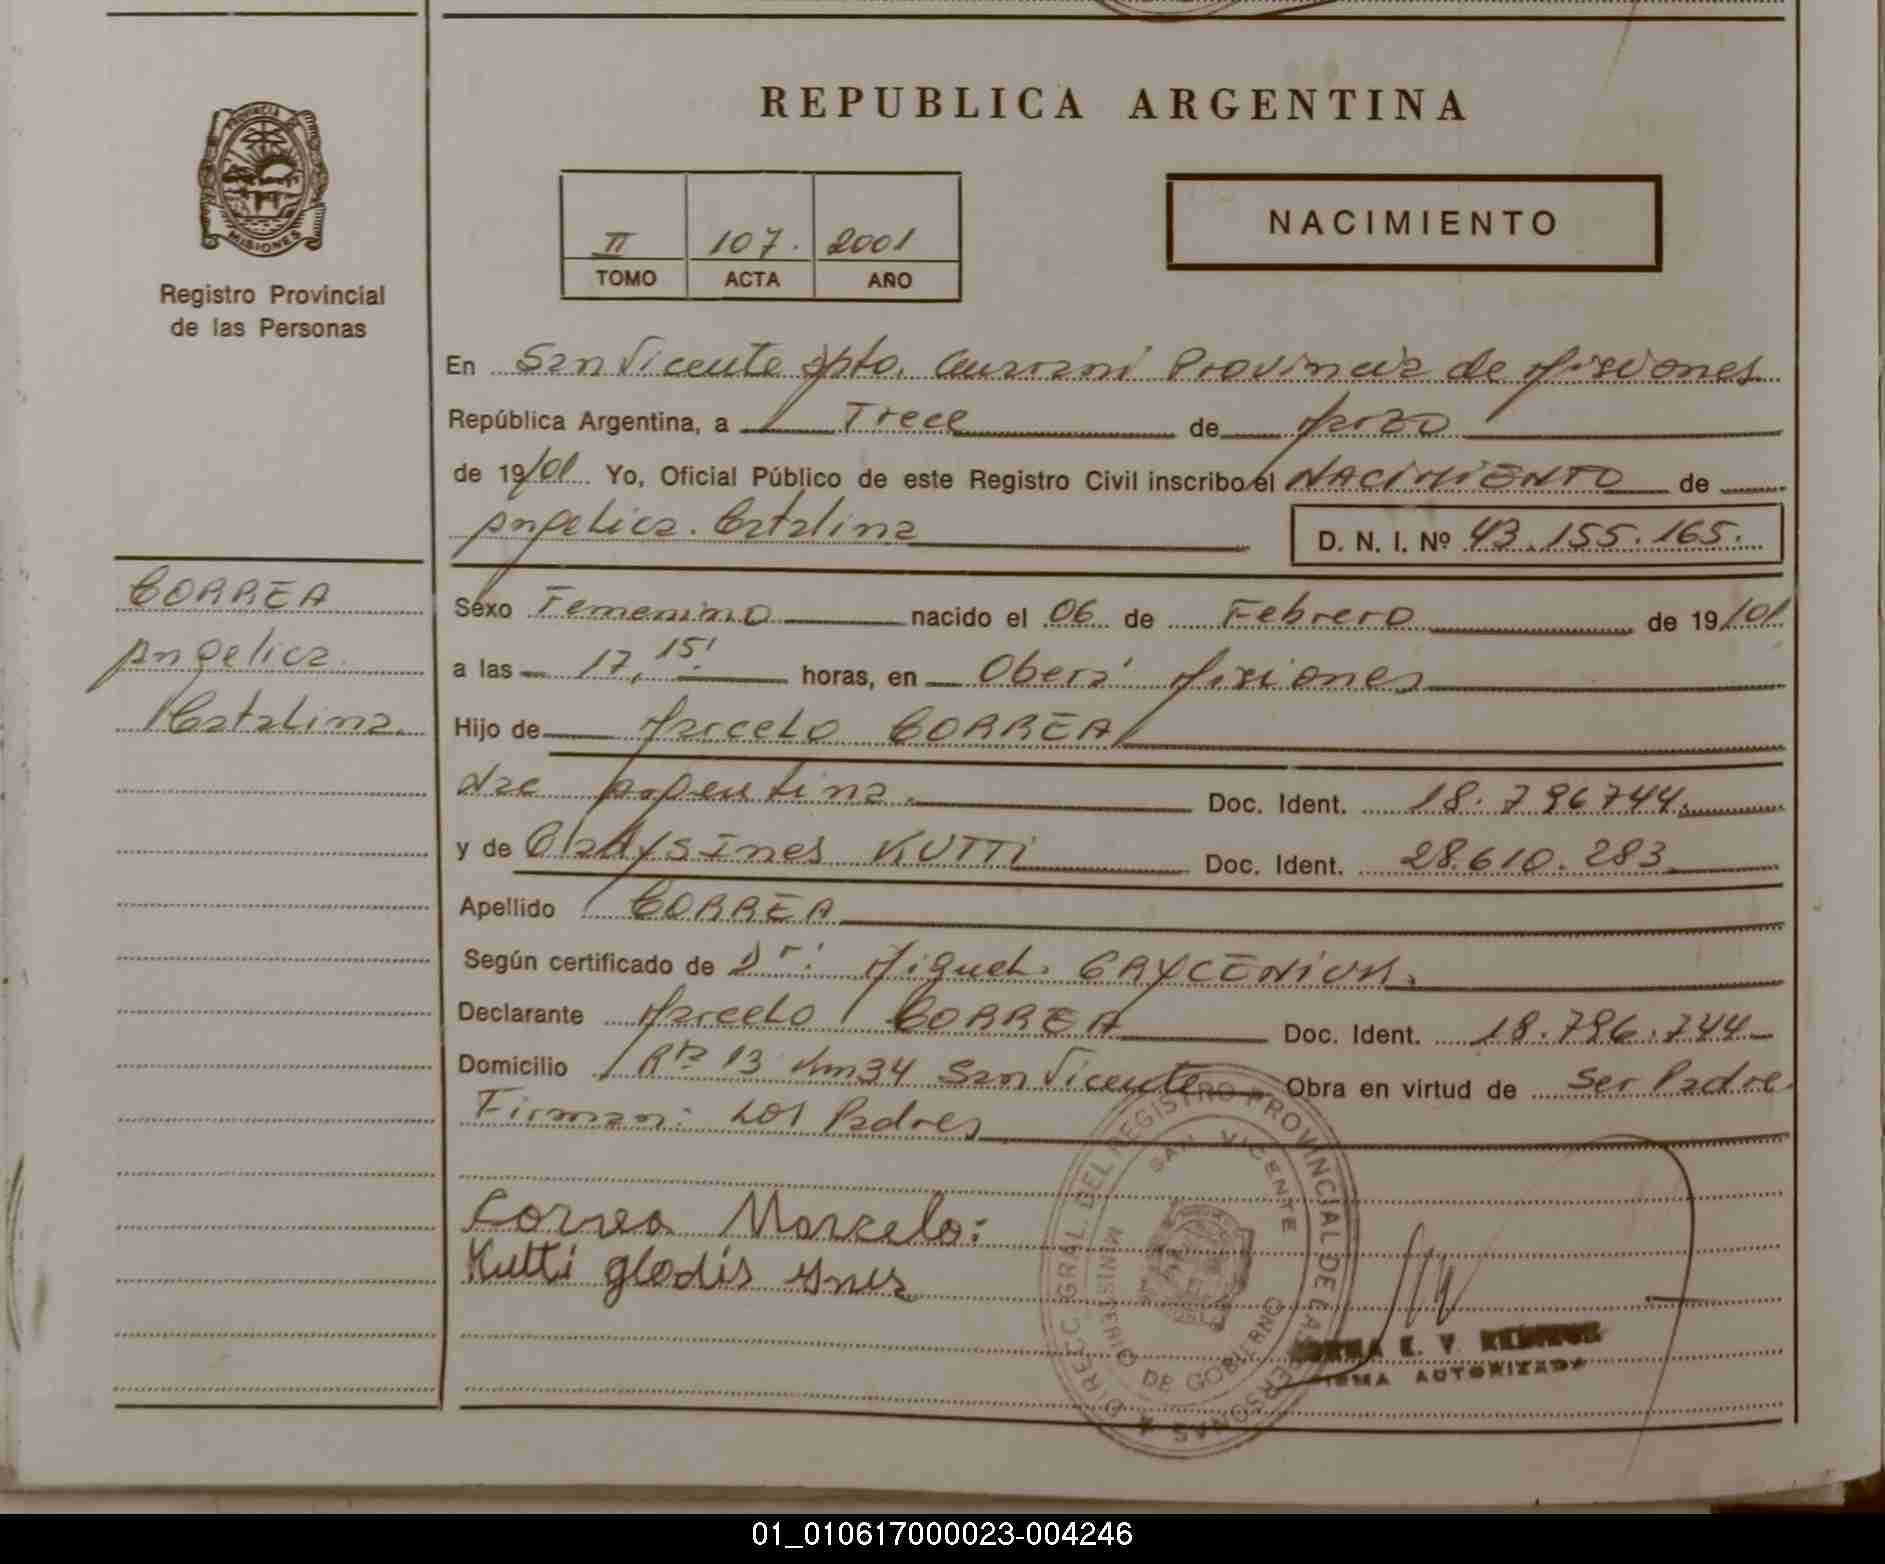 REPUBLICA ARGENTINA
PROVINCIA DE
MISIONES
Registro Provincial
de las Personas
II 107. 2001
TOMO ACTA AÑO
NACIMIENTO
En San Vicente Dpto. Guaraní Provincia de Misiones
República Argentina, a Trece de Marzo
de 19/01. Yo, Oficial Público de este Registro Civil inscribo el NACIMIENTO de
Angelica. Catalina D. N. I. Nº 43.155.165.
CORREA
Angelica.
Catalina.
Sexo Femenino nacido el 06 de Febrero de 19/01
a las 17,15' horas, en Oberá Misiones
Hijo de Marcelo CORREA
Nac Argentina. Doc. Ident. 18.796744.
y de Gladys Ines KUTTI Doc. Ident. 28.610.283
Apellido CORREA
Según certificado de Dr. Miguel
Declarante Marcelo CORREA Doc. Ident. 18.796.744
Domicilio Rta 13 Km34 San Vicente Obra en virtud de Ser Padre
Firman: Los Padres
Correa Marcelo:
Kutti glodis ynes
DIRECC. GRAL. DEL REGISTRO PROVINCIAL DE LAS PERSONAS
SAN VICENTE
MINISTERIO DE GOBIERNO
E. V.
FIRMA AUTORIZADA
01_010617000023-004246